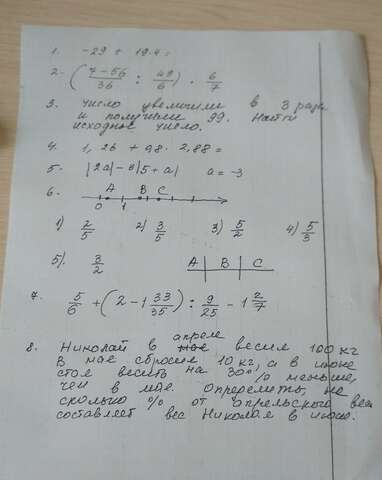 1. -29 + 19.4 =
2. (7-56/36 : 49/6) · 6/7
3. число увеличили в 3 раза
и получили 99. Найти
исходное число.
4. 1,26 + 98 · 2,88 =
5. |2a| - 8|5 + a| a = -3
6. A B C
0 1
1) 2/5 2) 3/5 3) 5/2 4) 5/3
5) 3/2 A | B | C
7. 5/6 + (2 - 1 33/35) : 9/25 - 1 2/7
8. Николай в апреле весил 100 кг
В мае сбросил 10 кг, а в июне
стал весить на 30% меньше,
чем в мае. Определить, на
сколько % от апрельского веса
составляет вес Николая в июне.